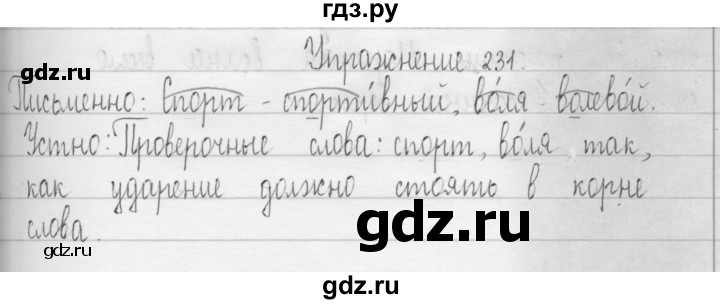 гдз.ру
Упражнение 231.
gdz.ru
Письменно: Спорт - спорти́вный, во́ля - волево́й.
Устно: Проверочные слова: спорт, во́ля, так,
как ударение должно стоять в корне
слова.
gdz.ru
gdz.ru
gdz.ru